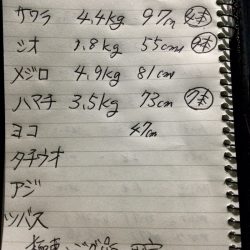 サワラ 4.4kg 97cm
シオ 1.8kg 55cm
メジロ 4.9kg 81cm
ハマチ 3.5kg 73cm
ヨコ 47cm
タチウオ
アジ
ツバス